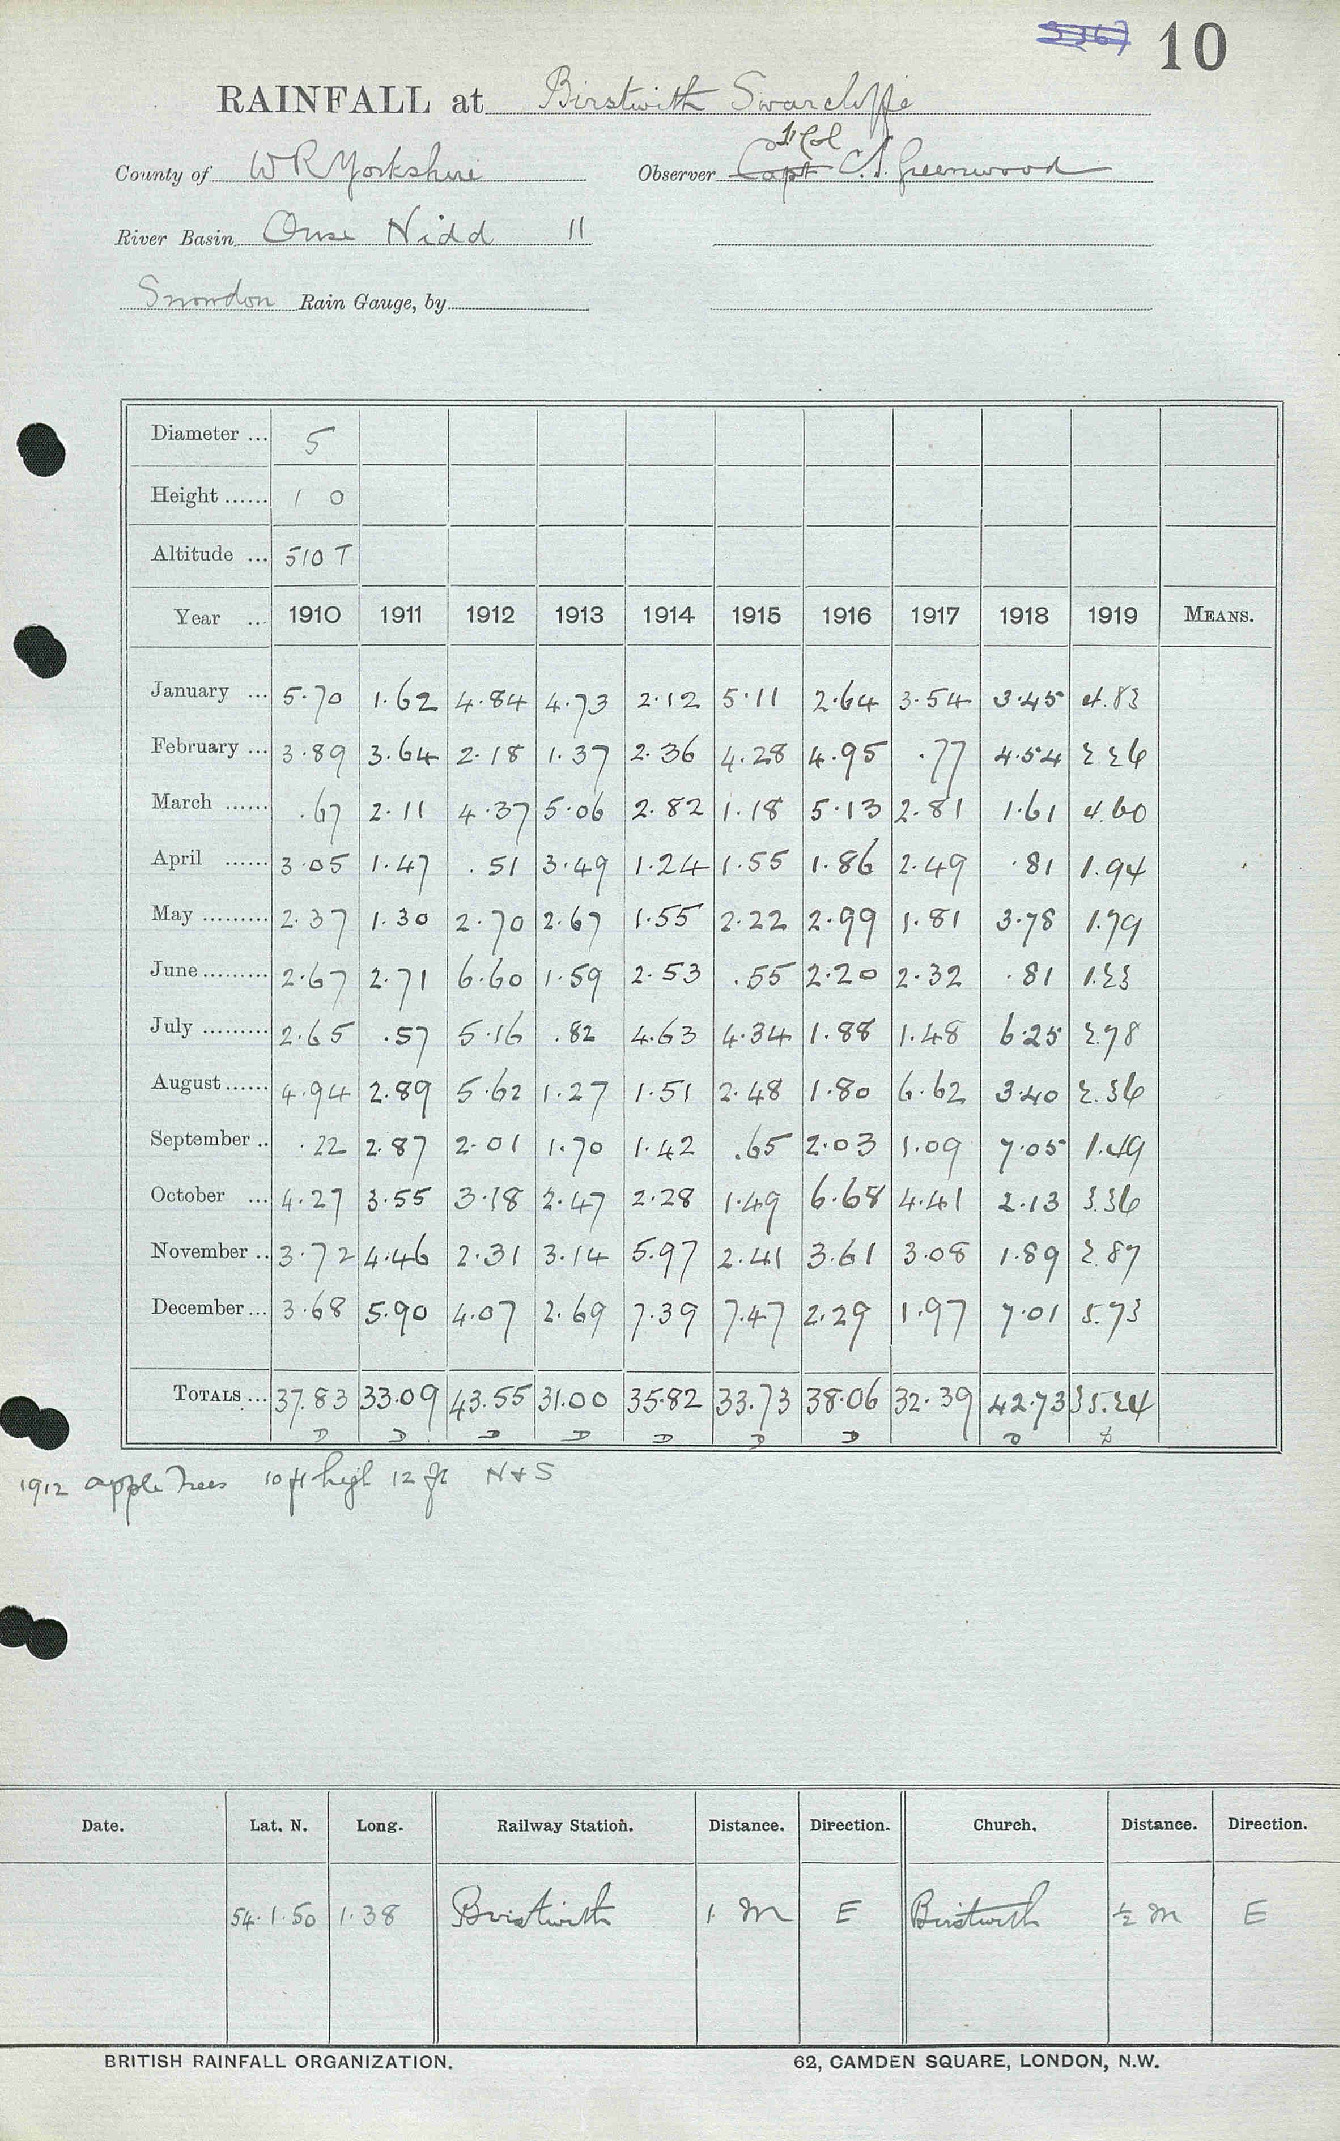 10
RAINFALL at Birstwith Swarcliffe
Lt Col
County of W R Yorkshire Observer Capt C. S. Greenwood
River Basin Ouse Nidd 11
Snowdon Rain Gauge, by
Diameter ... 5
Height ...... 1 0
Altitude ... 510 T
Year ... 1910 1911 1912 1913 1914 1915 1916 1917 1918 1919 MEANS.
January ... 5.70 1.62 4.84 4.73 2.12 5.11 2.64 3.54 3.45 4.83
February ... 3.89 3.64 2.18 1.37 2.36 4.28 4.95 .77 4.54 2.26
March ...... .67 2.11 4.37 5.06 2.82 1.18 5.13 2.81 1.61 4.60
April ...... 3.05 1.47 .51 3.49 1.24 1.55 1.86 2.49 .81 1.94
May ......... 2.37 1.30 2.70 2.67 1.55 2.22 2.99 1.81 3.78 1.79
June ......... 2.67 2.71 6.60 1.59 2.53 .55 2.20 2.32 .81 1.23
July ......... 2.65 .57 5.16 .82 4.63 4.34 1.88 1.48 6.25 2.78
August ...... 4.94 2.89 5.62 1.27 1.51 2.48 1.80 6.62 3.40 2.36
September .. .22 2.87 2.01 1.70 1.42 .65 2.03 1.09 7.05 1.49
October ... 4.27 3.55 3.18 2.47 2.28 1.49 6.68 4.41 2.13 3.36
November .. 3.72 4.46 2.31 3.14 5.97 2.41 3.61 3.08 1.89 2.87
December ... 3.68 5.90 4.07 2.69 7.39 7.47 2.29 1.97 7.01 5.73
TOTALS ... 37.83 33.09 43.55 31.00 35.82 33.73 38.06 32.39 42.73 35.24
D D D D D D D D
1912 apple trees 10 ft high 12 ft N & S
Date. Lat. N. Long. Railway Station. Distance. Direction. Church. Distance. Direction.
54.1.50 1.38 Birstwith 1 m E Birstwith ½ m E
BRITISH RAINFALL ORGANIZATION. 62, CAMDEN SQUARE, LONDON, N.W.